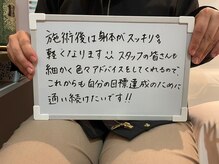 施術後は身体がスッキリ&
軽くなります!! スタッフの皆さんも
細かく色々アドバイスをしてくれるので
これからも自分の目標達成のために
通い続けたいです!!